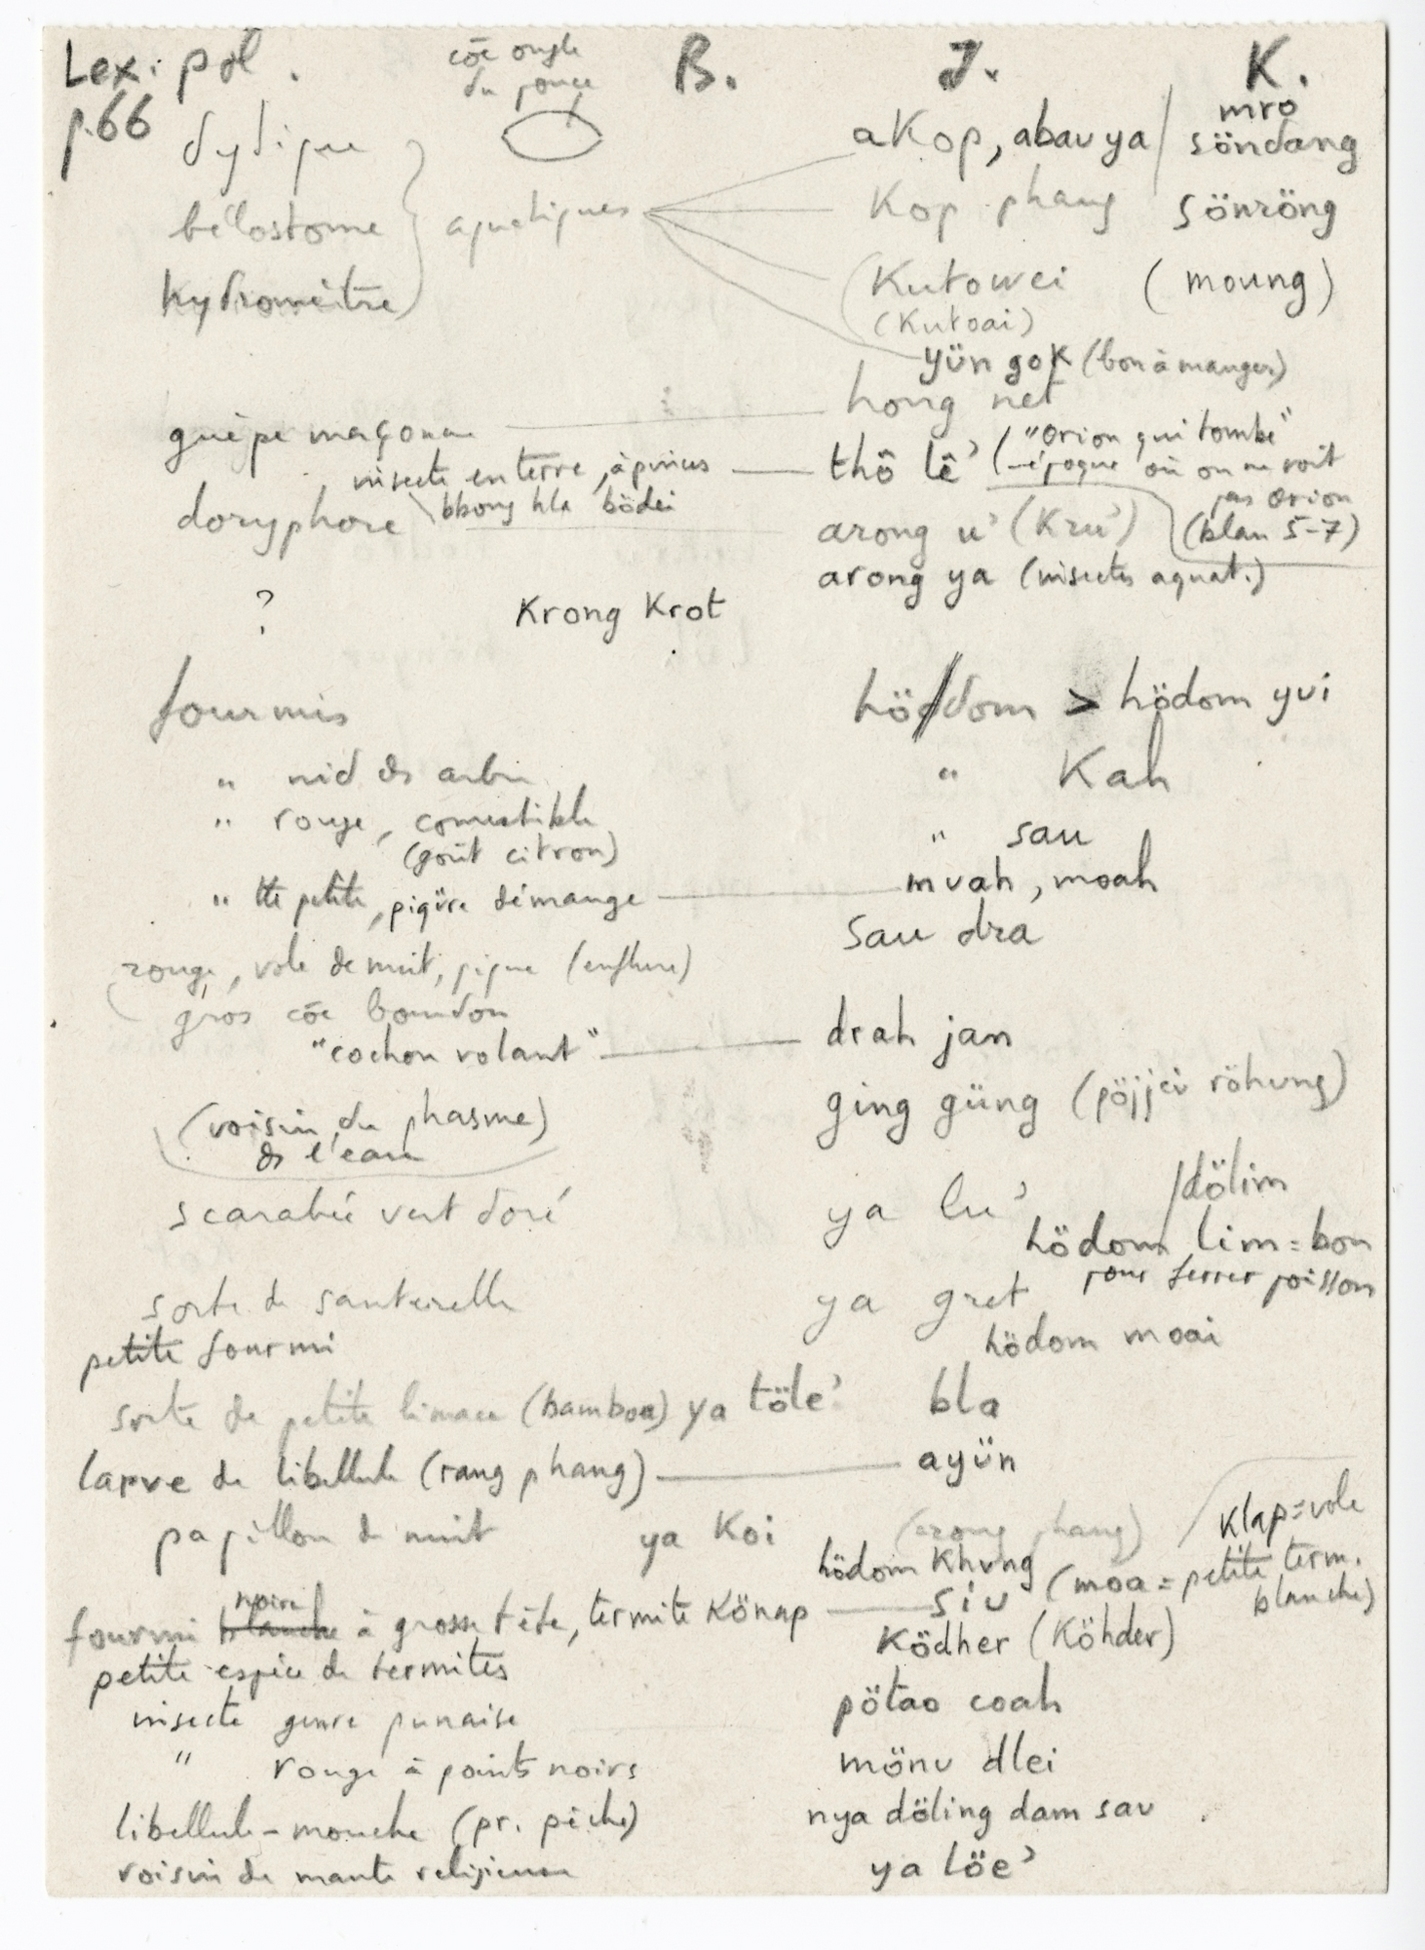 Lex. pol. côe ongle B. J. K.
p.66 du pouce
dytique akop, abau ya / mrô söndang
bélostome } aquatiques Kop phang sönröng
hydromètre (Kutowei (moung)
(Kutoai)
yün gok (bon à manger)
guêpe maçonne hong net
insecte en terre, à pinces thô lê' ("Orion qui tombe"
bbong hla bödei - époque où on ne voit
pas Orion
doryphore arong u' (Kru') (blan 5-7)
arong ya (insectes aquat.)
? Krong Krot
fourmis hödom > hödom yui
" nid ds arbre " Kah
" rouge, comestible " sau
(goût citron)
" tte petite, piqûre démange muah, moah
sau dra
rouge, vole de nuit, pique (enflure)
gros côe bourdon
"cochon volant" drah jan
ging güng (pöjjei röhung)
(voisin du phasme)
ds l'eau
scarabée vert doré ya lu' /dölim
hödom lim = bon
pour ferrer poisson
sorte de sauterelle ya gret
petite fourmi hödom moai
sorte de petite limace (bamboa) ya töle' bla
larve de libellule (rang phang) ayün
papillon de nuit ya Koi (arong phang) klap = vole
hödom Khung (moa = petite term.
blanche)
fourmi blanche noire à grosse tête, termite Könap siu
petite espèce de termites Ködher (Köhder)
insecte genre punaise pötao coah
" rouge à points noirs mönu dlei
libellule-mouche (pr. pêche) nya döling dam sau
voisin de mante religieuse ya löe'